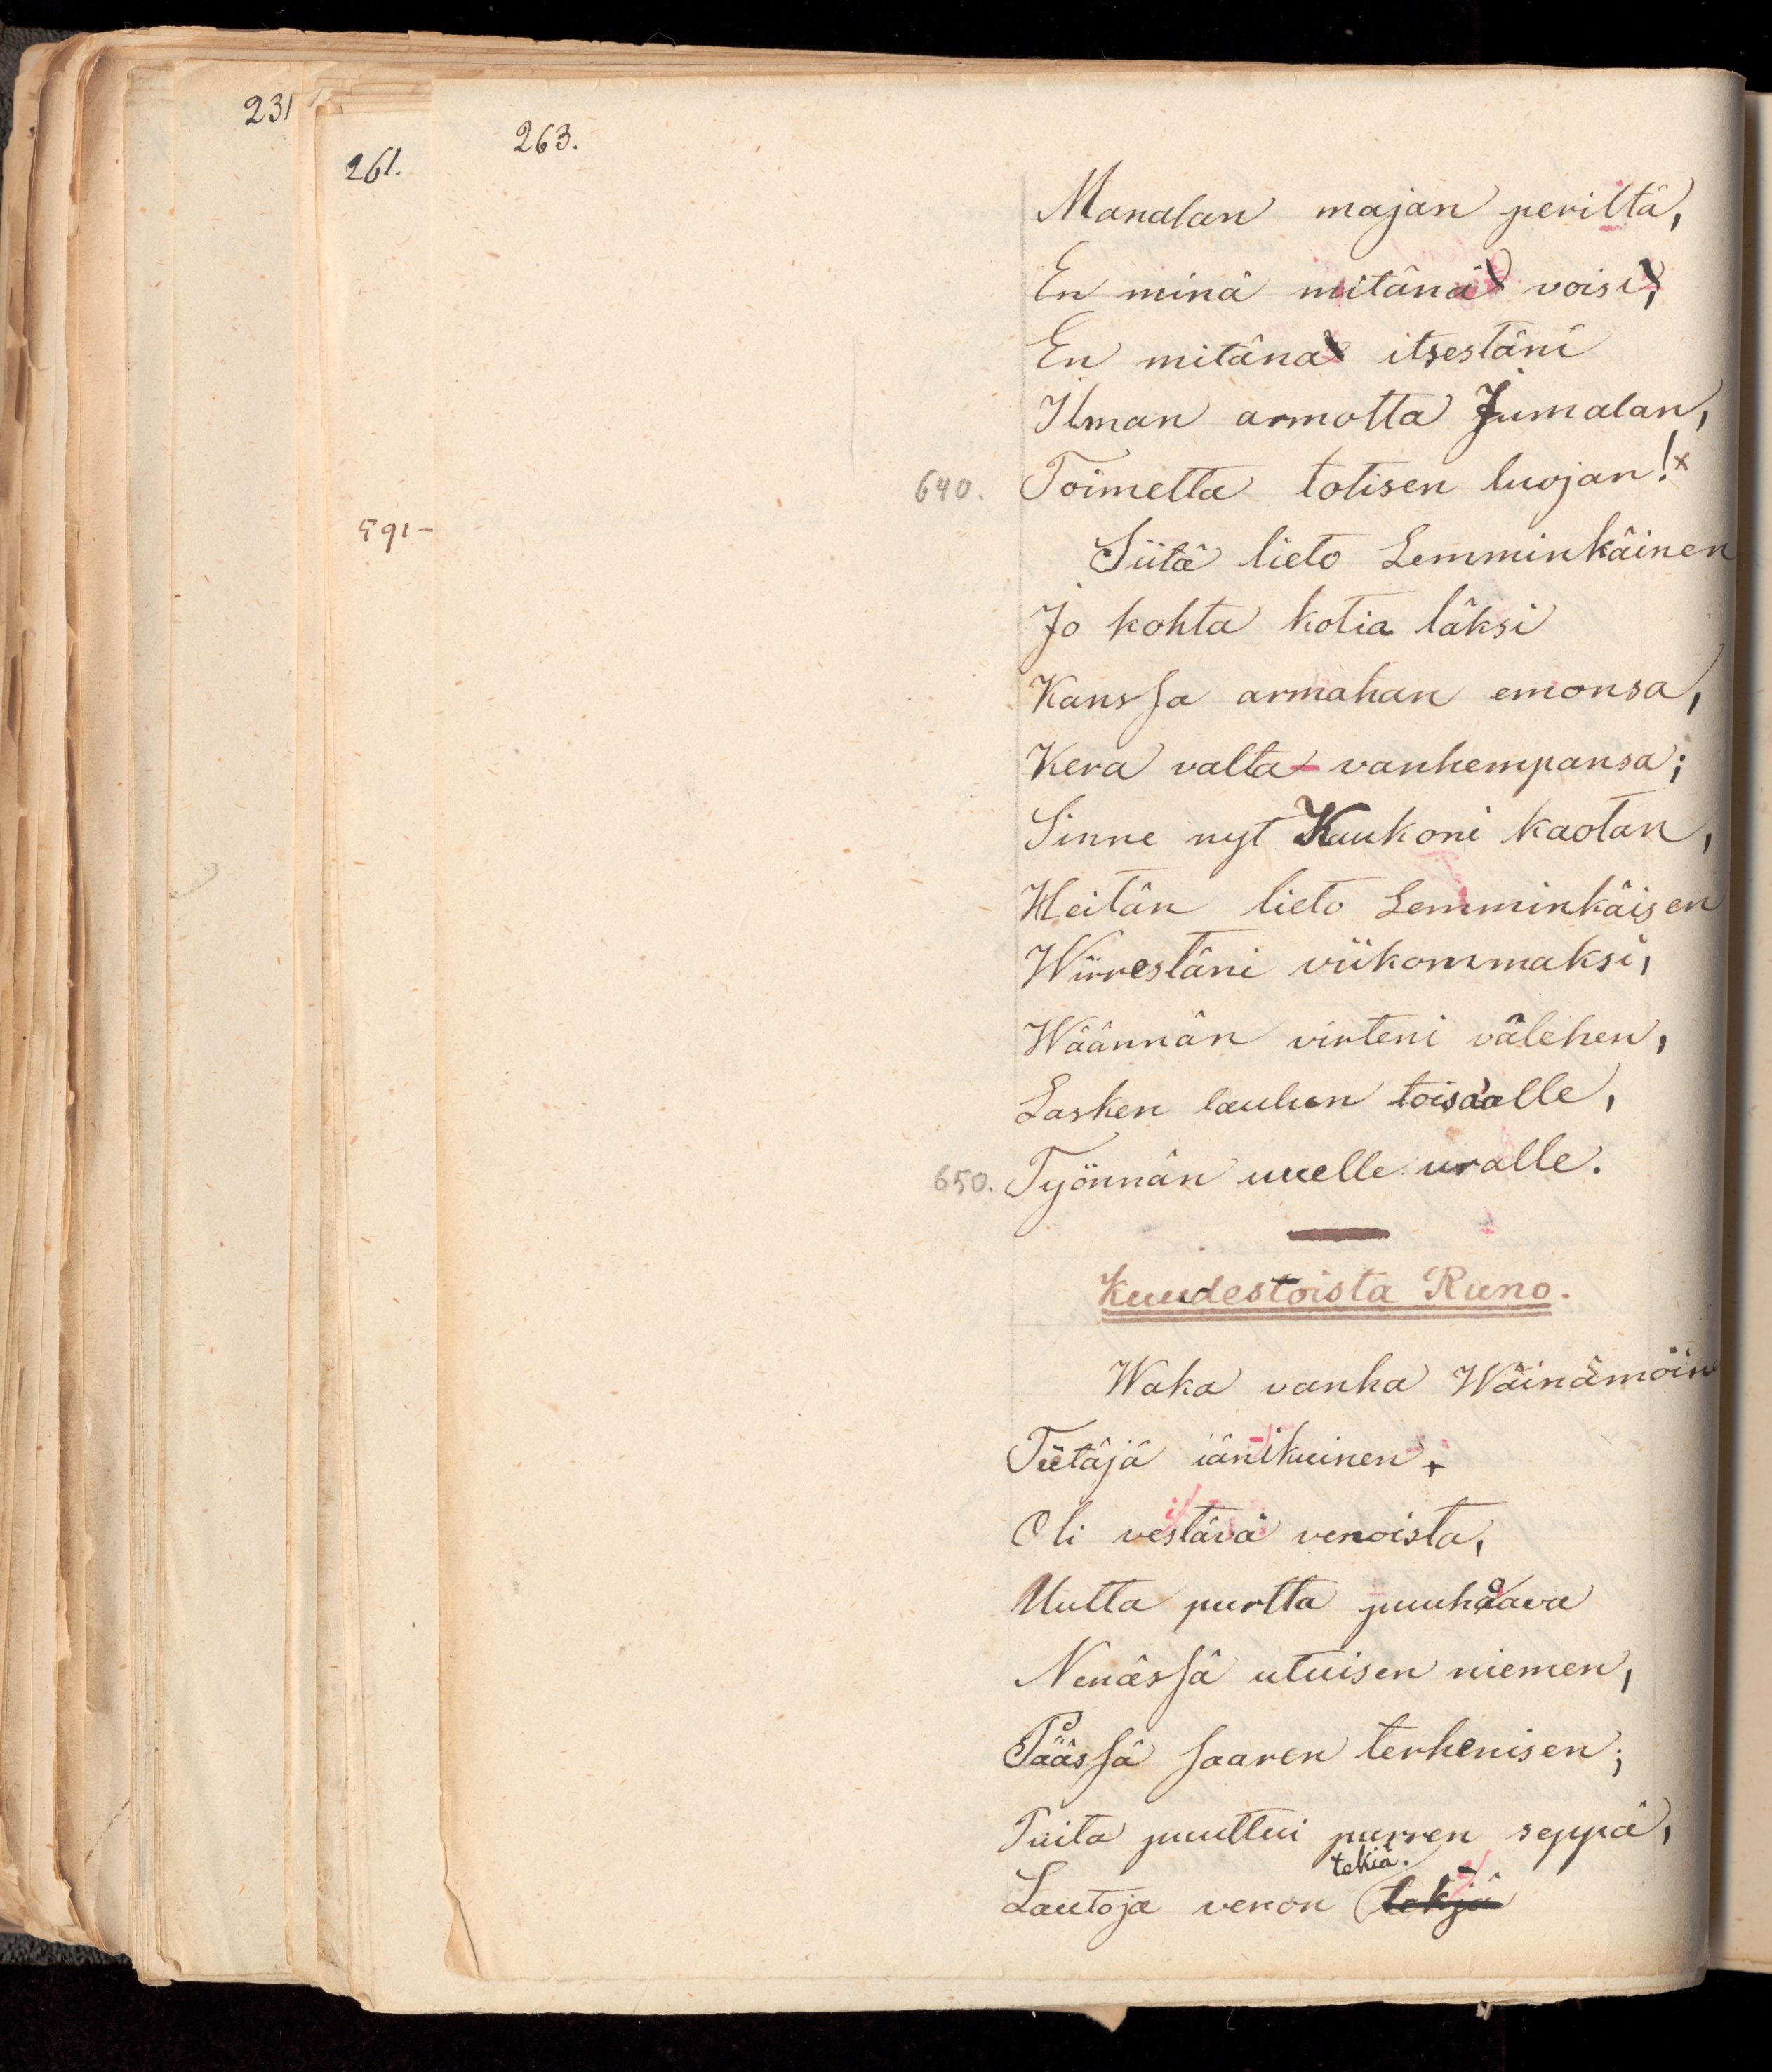 231
261.
263.
Manalan majan periltä,
En minä mitänä voisi,
En mitänä itsestäni
Ilman armotta Jumalan,
640. Toimetta totisen luojan!x
Siitä lieto Lemminkäinen
Jo kohta kotia läksi
Kanssa armahan emonsa,
Kera valta-vanhempansa;
Sinne nyt Kaukoni kaotan,
Heitän lieto Lemminkäisen
Wirrestäni viikommaksi,
Wäännän virteni välehen,
Lasken laulun toisaalle,
650. Työnnän uuelle uralle.
Kuudestoista Runo.
Waka vanha Wäinämöin
Tietäjä iänikuinen,
Oli vestävä venoista,
Uutta purtta puuhaava
Nenässä utuisen niemen,
Päässä saaren terhenisen;
Puita puuttui purren seppä,
tekiä.
Lautoja venon tekjä